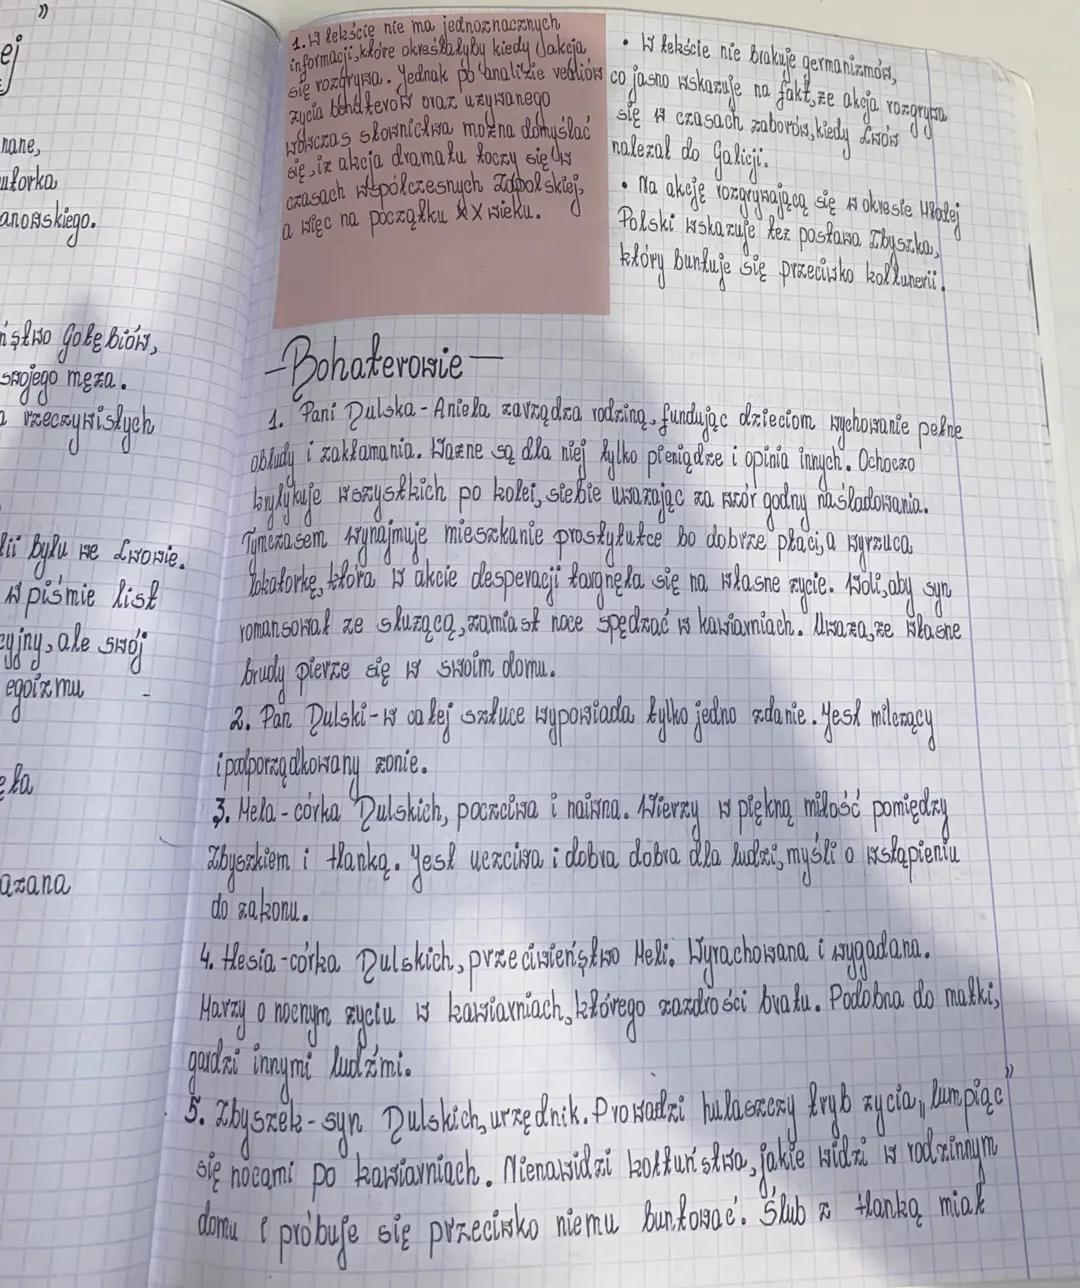 »
ej
nane,
utorka
anowskiego.
ństwo Gołębiów,
swojego męża.
a rzeczywistych
lii byłu we Lwowie.
w piśmie list
cyjny, ale swój
egoizmu
eła
azana
1. W tekście nie ma jednoznacznych
informacji, które określałyby kiedy akcja
się rozgrywa. Jednak po analizie realiów
życia bohaterów oraz używanego
wówczas słownictwa można domyślać
się, iż akcja dramatu toczy się w
czasach współczesnych Zapolskiej,
a więc na początku XX wieku.
• W tekście nie brakuje germanizmów,
co jasno wskazuje na fakt, że akcja rozgrywa
się w czasach zaborów, kiedy Lwów
należał do Galicji.
• Na akcję rozgrywającą się w okresie Młodej
Polski wskazuje też postawa Zbyszka,
który buntuje się przeciwko kołtunerii.
- Bohaterowie -
1. Pani Dulska - Aniela zarządza rodziną, fundując dzieciom wychowanie pełne
obłudy i zakłamania. Ważne są dla niej tylko pieniądze i opinia innych. Ochoczo
krytykuje wszystkich po kolei, siebie uważając za wzór godny naśladowania.
Tymczasem wynajmuje mieszkanie prostytutce bo dobrze płaci, a wyrzuca
lokatorkę, która w akcie desperacji targnęła się na własne życie. Woli, aby syn
romansował ze służącą, zamiast noce spędzać w kawiarniach. Uważa, że własne
brudy pierze się w swoim domu.
2. Pan Dulski - w całej sztuce wypowiada tylko jedno zdanie. Jest milczący
i podporządkowany żonie.
3. Mela - córka Dulskich, poczciwa i naiwna. Wierzy w piękną miłość pomiędzy
Zbyszkiem i Hanką. Jest uczciwa i dobra dobra dla ludzi, myśli o wstąpieniu
do zakonu.
4. Hesia - córka Dulskich, przeciwieństwo Meli. Wyrachowana i wygadana.
Marzy o nocnym życiu w kawiarniach, którego zazdrości bratu. Podobna do matki,
gardzi innymi ludźmi.
5. Zbyszek - syn Dulskich, urzędnik. Prowadzi hulaszczy tryb życia, „lumpiąc”
się nocami po kawiarniach. Nienawidzi kołtuństwa, jakie widzi w rodzinnym
domu i próbuje się przeciwko niemu buntować. Ślub z Hanką miał